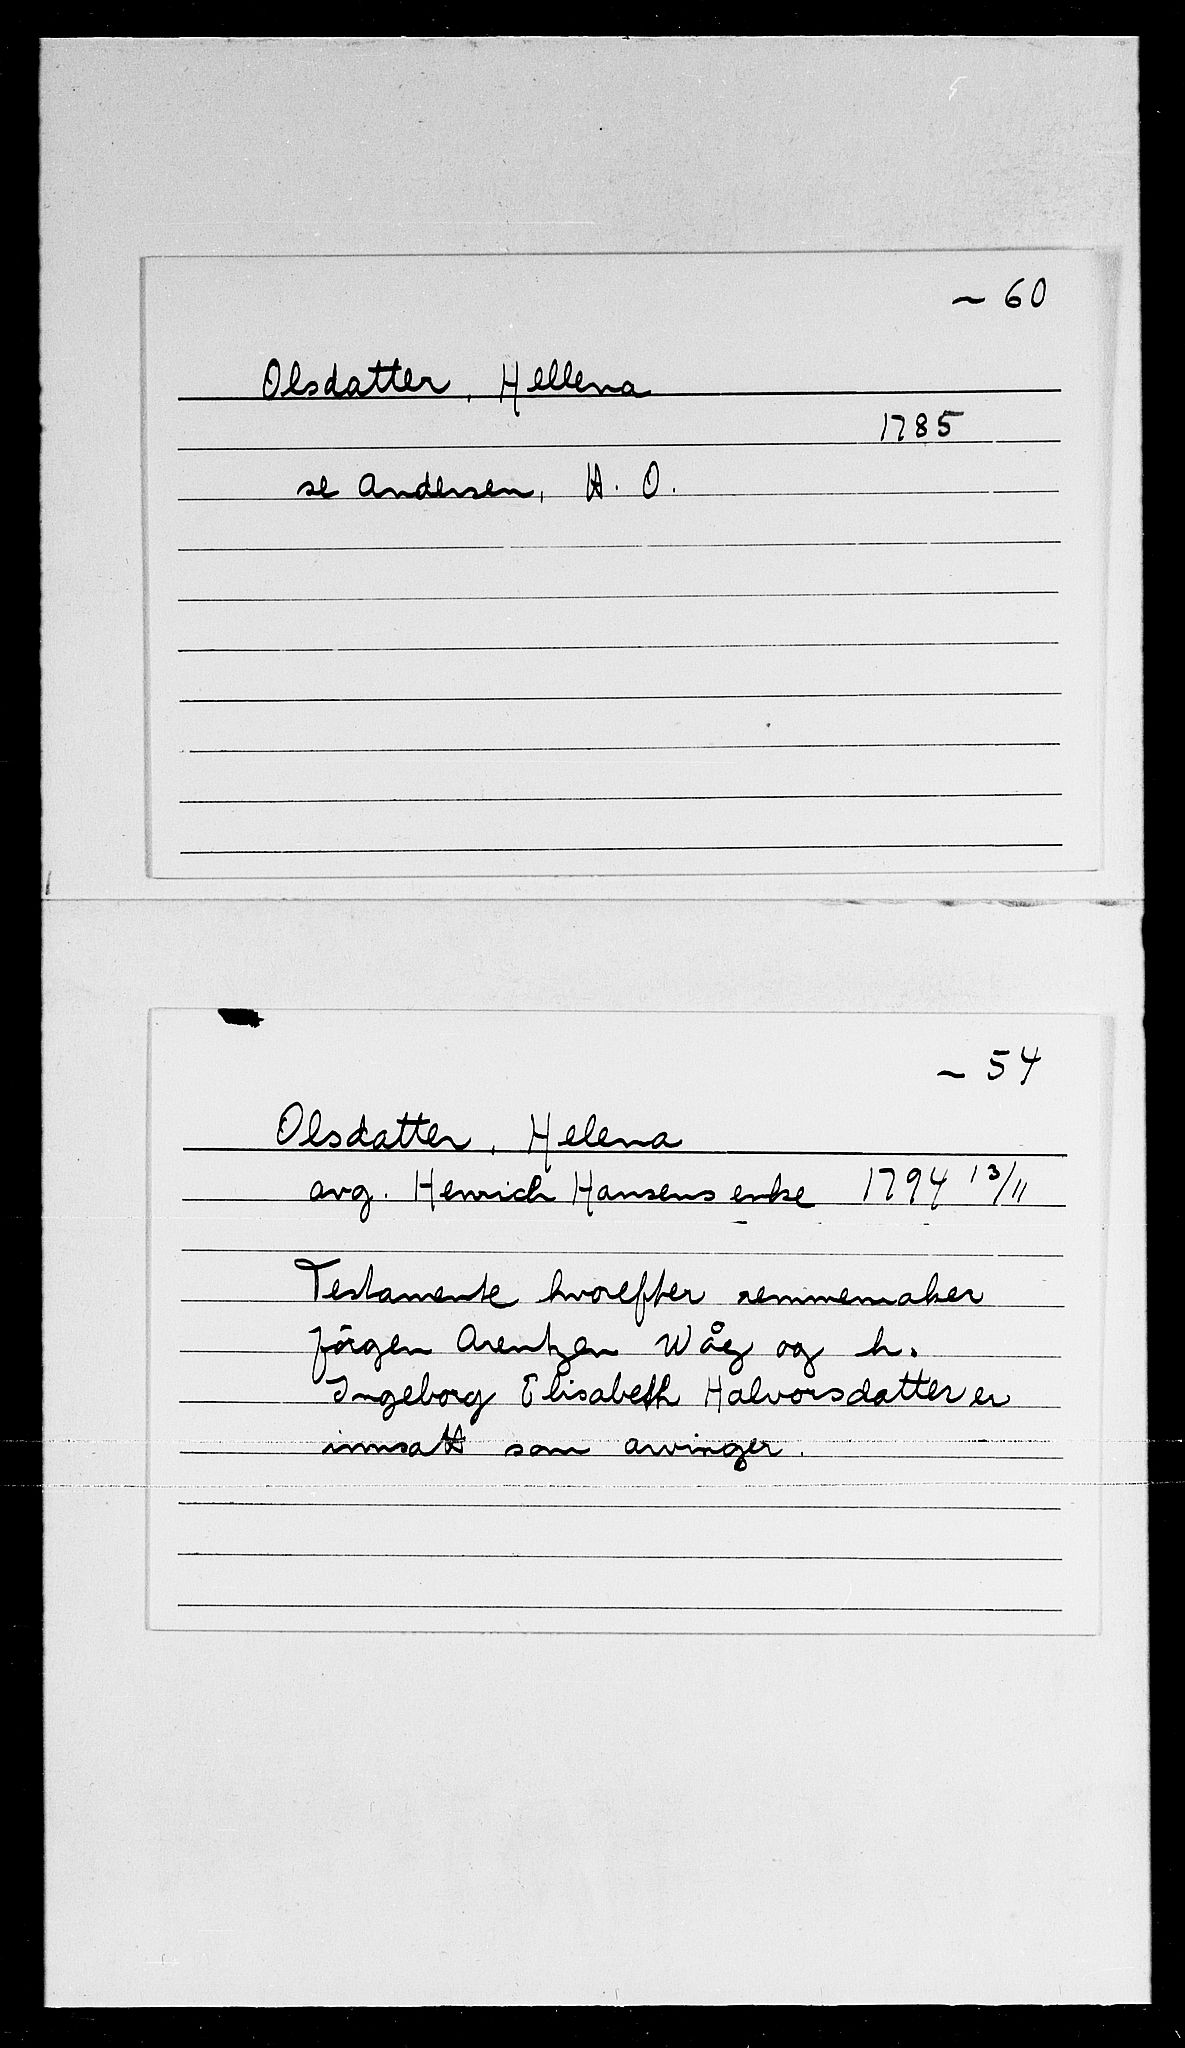 ~ 60
Olsdatter, Hellena
1785
se Andersen, H. O.
~ 54
Olsdatter, Helena
avg. Henrich Hansens enke 1794 13/11
Testamente hvorefter remmemaker
Jörgen Arentzen Wåg og h.
Ingeborg Elisabeth Halvorsdatter er
innsatt som arvinger.